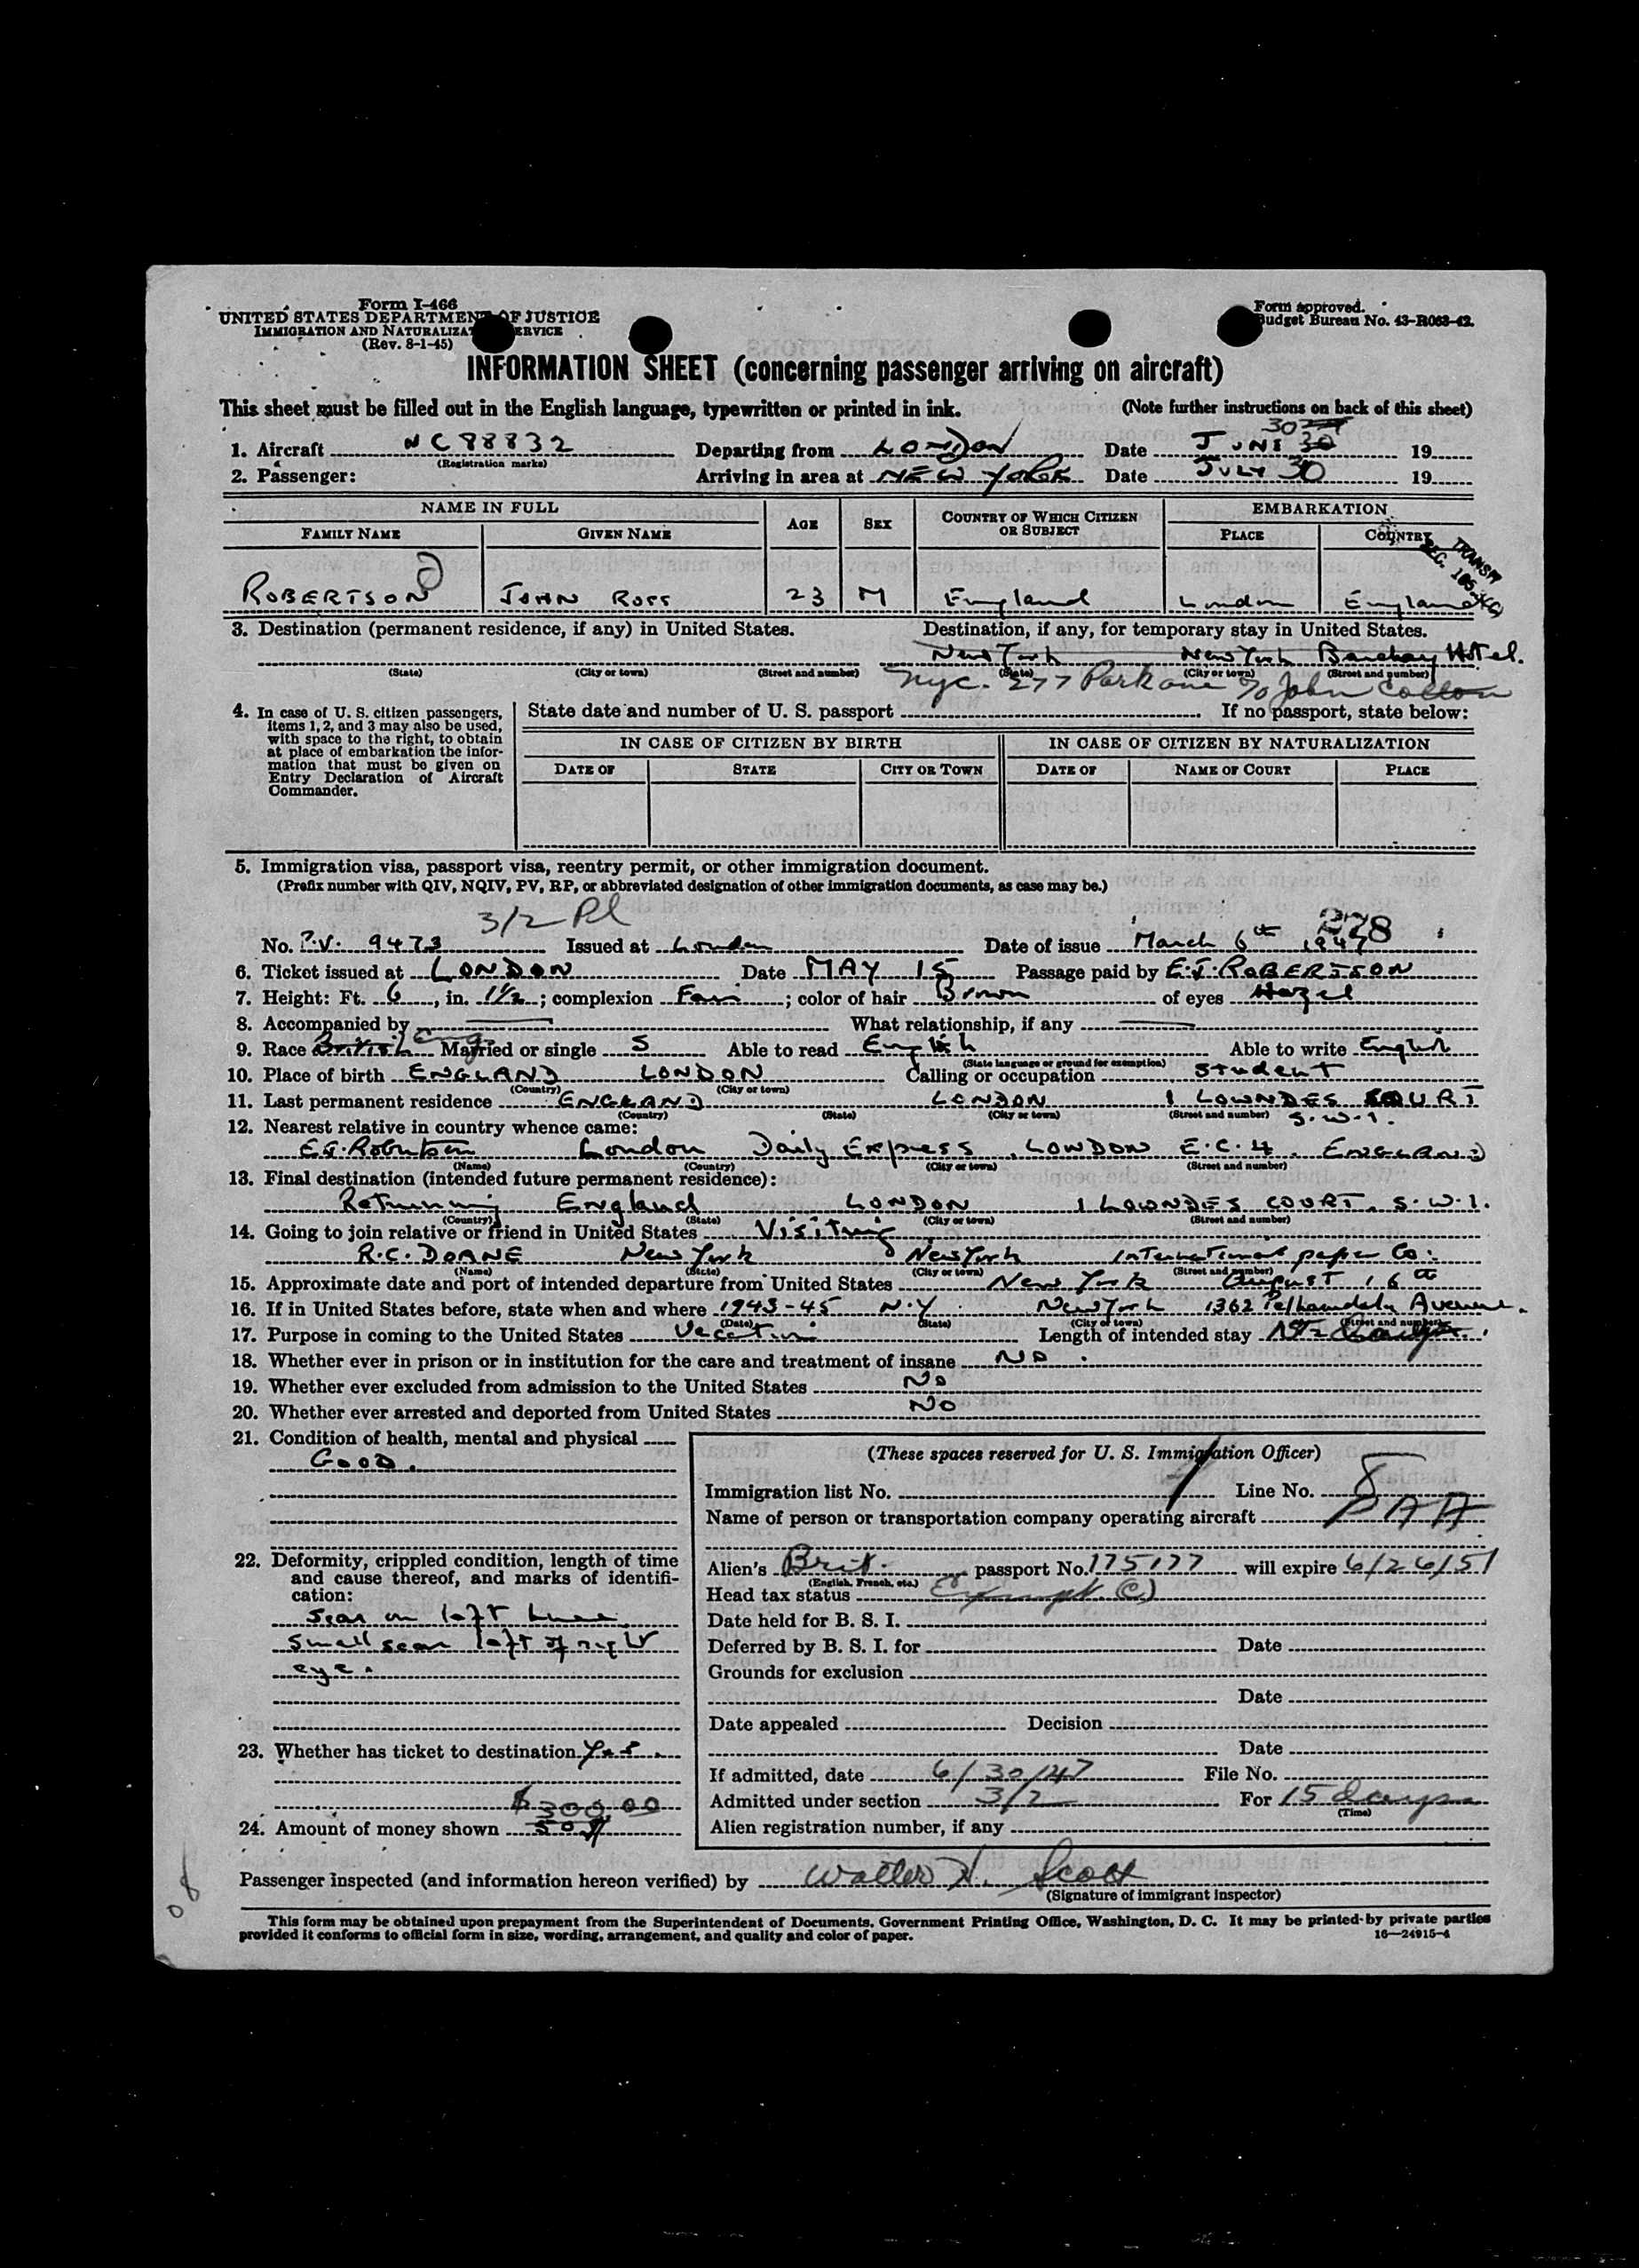 Form I-466
UNITED STATES DEPARTMENT OF JUSTICE
IMMIGRATION AND NATURALIZATION SERVICE
(Rev. 8-1-45)
Form approved.
Budget Bureau No. 43-R063-42.
INFORMATION SHEET (concerning passenger arriving on aircraft)
This sheet must be filled out in the English language, typewritten or printed in ink. (Note further instructions on back of this sheet)
1. Aircraft NC88832 Departing from LONDON Date JUNE 30 19
(Registration marks)
2. Passenger: Arriving in area at NEW YORK Date JULY 30 19
NAME IN FULL AGE SEX COUNTRY OF WHICH CITIZEN OR SUBJECT EMBARKATION
FAMILY NAME GIVEN NAME PLACE COUNTRY
TRANSIT
ROBERTSON JOHN ROSS 23 M England London England
3. Destination (permanent residence, if any) in United States. Destination, if any, for temporary stay in United States.
New York New York Barclay Hotel.
(State) (City or town) (Street and number) (State) (City or town) (Street and number)
Nyc. 277 Park ave c/o John
4. In case of U. S. citizen passengers, items 1, 2, and 3 may also be used, with space to the right, to obtain at place of embarkation the information that must be given on Entry Declaration of Aircraft Commander.
State date and number of U. S. passport If no passport, state below:
IN CASE OF CITIZEN BY BIRTH IN CASE OF CITIZEN BY NATURALIZATION
DATE OF STATE CITY OR TOWN DATE OF NAME OF COURT PLACE
5. Immigration visa, passport visa, reentry permit, or other immigration document.
(Prefix number with QIV, NQIV, PV, RP, or abbreviated designation of other immigration documents, as case may be.)
3/2
No. P.V. 9473 Issued at London Date of issue March 6th 1947
6. Ticket issued at LONDON Date MAY 15 Passage paid by E.J. ROBERTSON
7. Height: Ft. 6, in. 1½; complexion Fair; color of hair Brown of eyes Hazel
8. Accompanied by What relationship, if any
9. Race British Eng Married or single S Able to read English Able to write English
(State language or ground for exemption)
10. Place of birth ENGLAND LONDON Calling or occupation Student
(Country) (City or town)
11. Last permanent residence ENGLAND LONDON 1 LOWNDES COURT
(Country) (State) (City or town) (Street and number) S.W.1.
12. Nearest relative in country whence came:
E.J. Robertson London Daily Express, LONDON E.C.4. ENGLAND
(Name) (Country) (City or town) (Street and number)
13. Final destination (intended future permanent residence):
Returning England LONDON 1 LOWNDES COURT. S.W.1.
(Country) (State) (City or town) (Street and number)
14. Going to join relative or friend in United States Visiting
R.C. DOANE New York New York International paper Co.
(Name) (State) (City or town) (Street and number)
15. Approximate date and port of intended departure from United States New York August 16th
16. If in United States before, state when and where 1943-45 N.Y. New York 1362 Pelhamdale Avenue.
(Date) (State) (City or town) (Street and number)
17. Purpose in coming to the United States Vacation Length of intended stay
18. Whether ever in prison or in institution for the care and treatment of insane No.
19. Whether ever excluded from admission to the United States No
20. Whether ever arrested and deported from United States No
21. Condition of health, mental and physical
GOOD.
22. Deformity, crippled condition, length of time and cause thereof, and marks of identification:
Scar on left knee
small scar left of right
eye.
23. Whether has ticket to destination Yes.
$300.00
24. Amount of money shown
(These spaces reserved for U. S. Immigration Officer)
Immigration list No. 1 Line No. 8
Name of person or transportation company operating aircraft PAA
Alien's Brit. passport No. 175177 will expire 6/26/51
(English, French, etc.)
Head tax status Exempt (C)
Date held for B. S. I.
Deferred by B. S. I. for Date
Grounds for exclusion
Date
Date appealed Decision
Date
If admitted, date 6/30/47 File No.
Admitted under section 3/2 For 15 days
(Time)
Alien registration number, if any
Passenger inspected (and information hereon verified) by Walter H. Scott
(Signature of immigrant inspector)
This form may be obtained upon prepayment from the Superintendent of Documents, Government Printing Office, Washington, D. C. It may be printed by private parties
provided it conforms to official form in size, wording, arrangement, and quality and color of paper. 16—24915-4